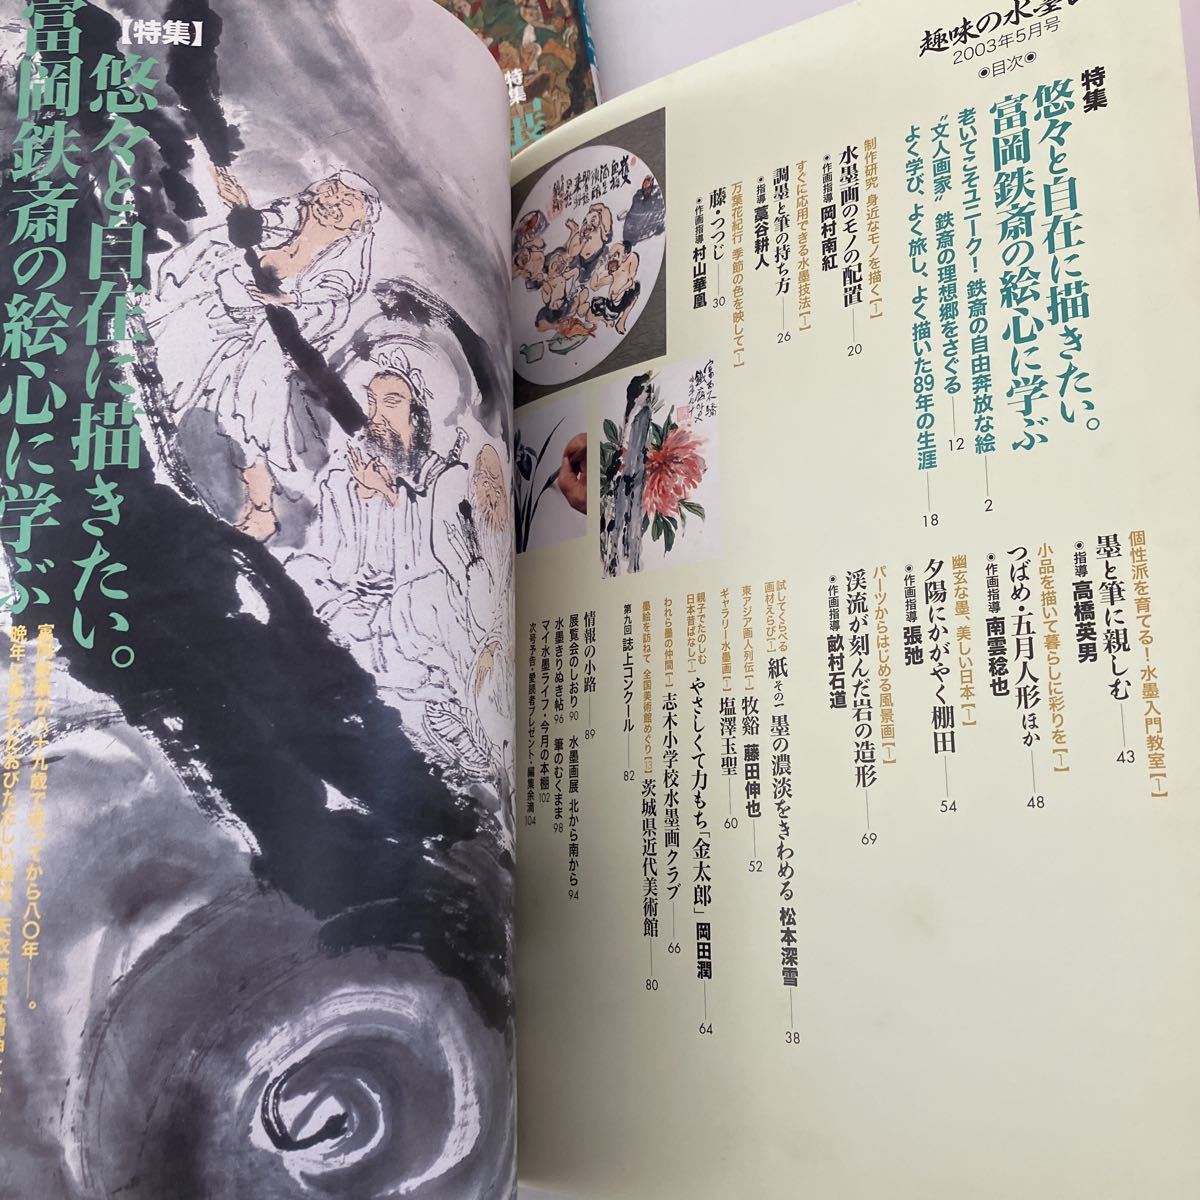 【特集】
悠々と自在に描きたい。
富岡鉄斎の絵心に学ぶ
特集
趣味の水墨
2003年5月号
◉目次◉
特集
悠々と自在に描きたい。
富岡鉄斎の絵心に学ぶ
老いてこそユニーク！鉄斎の自由奔放な絵 2
“文人画家”鉄斎の理想郷をさぐる 12
よく学び、よく旅し、よく描いた89年の生涯 18
制作研究 身近なモノを描く［1］
水墨画のモノの配置 20
◉作画指導 岡村南紅
すぐに応用できる水墨技法［1］
調墨と筆の持ち方 26
◉指導 藁谷耕人
万葉花紀行 季節の色を映して［1］
藤・つつじ 30
◉作画指導 村山華凰
個性派を育てる！水墨入門教室［1］
墨と筆に親しむ 43
◉指導 高橋英男
小品を描いて暮らしに彩りを［1］
つばめ・五月人形ほか 48
◉作画指導 南雲稔也
幽玄な墨、美しい日本［1］
夕陽にかがやく棚田 54
◉作画指導 張弛
パーツからはじめる風景画［1］
渓流が刻んだ岩の造形 69
◉作画指導 畝村石道
試してくらべる
画材えらび［1］
紙 その一 墨の濃淡をきわめる 松本深雪 38
東アジア画人列伝［1］
牧谿 藤田伸也 52
ギャラリー水墨画［1］
塩澤玉聖 60
親子でたのしむ
日本昔ばなし［1］
やさしくて力もち「金太郎」 岡田潤 64
われら墨の仲間［1］
志木小学校水墨画クラブ 66
墨絵を訪ねて 全国美術館めぐり［13］
茨城県近代美術館 80
第九回 誌上コンクール 82
情報の小路 89
展覧会のしおり 90 水墨画展 北から南から 94
水墨きりぬき帖 96 筆のむくまま 98
マイ水墨ライフ・今月の本棚 102
次号予告・愛読者プレゼント・編集余滴 104